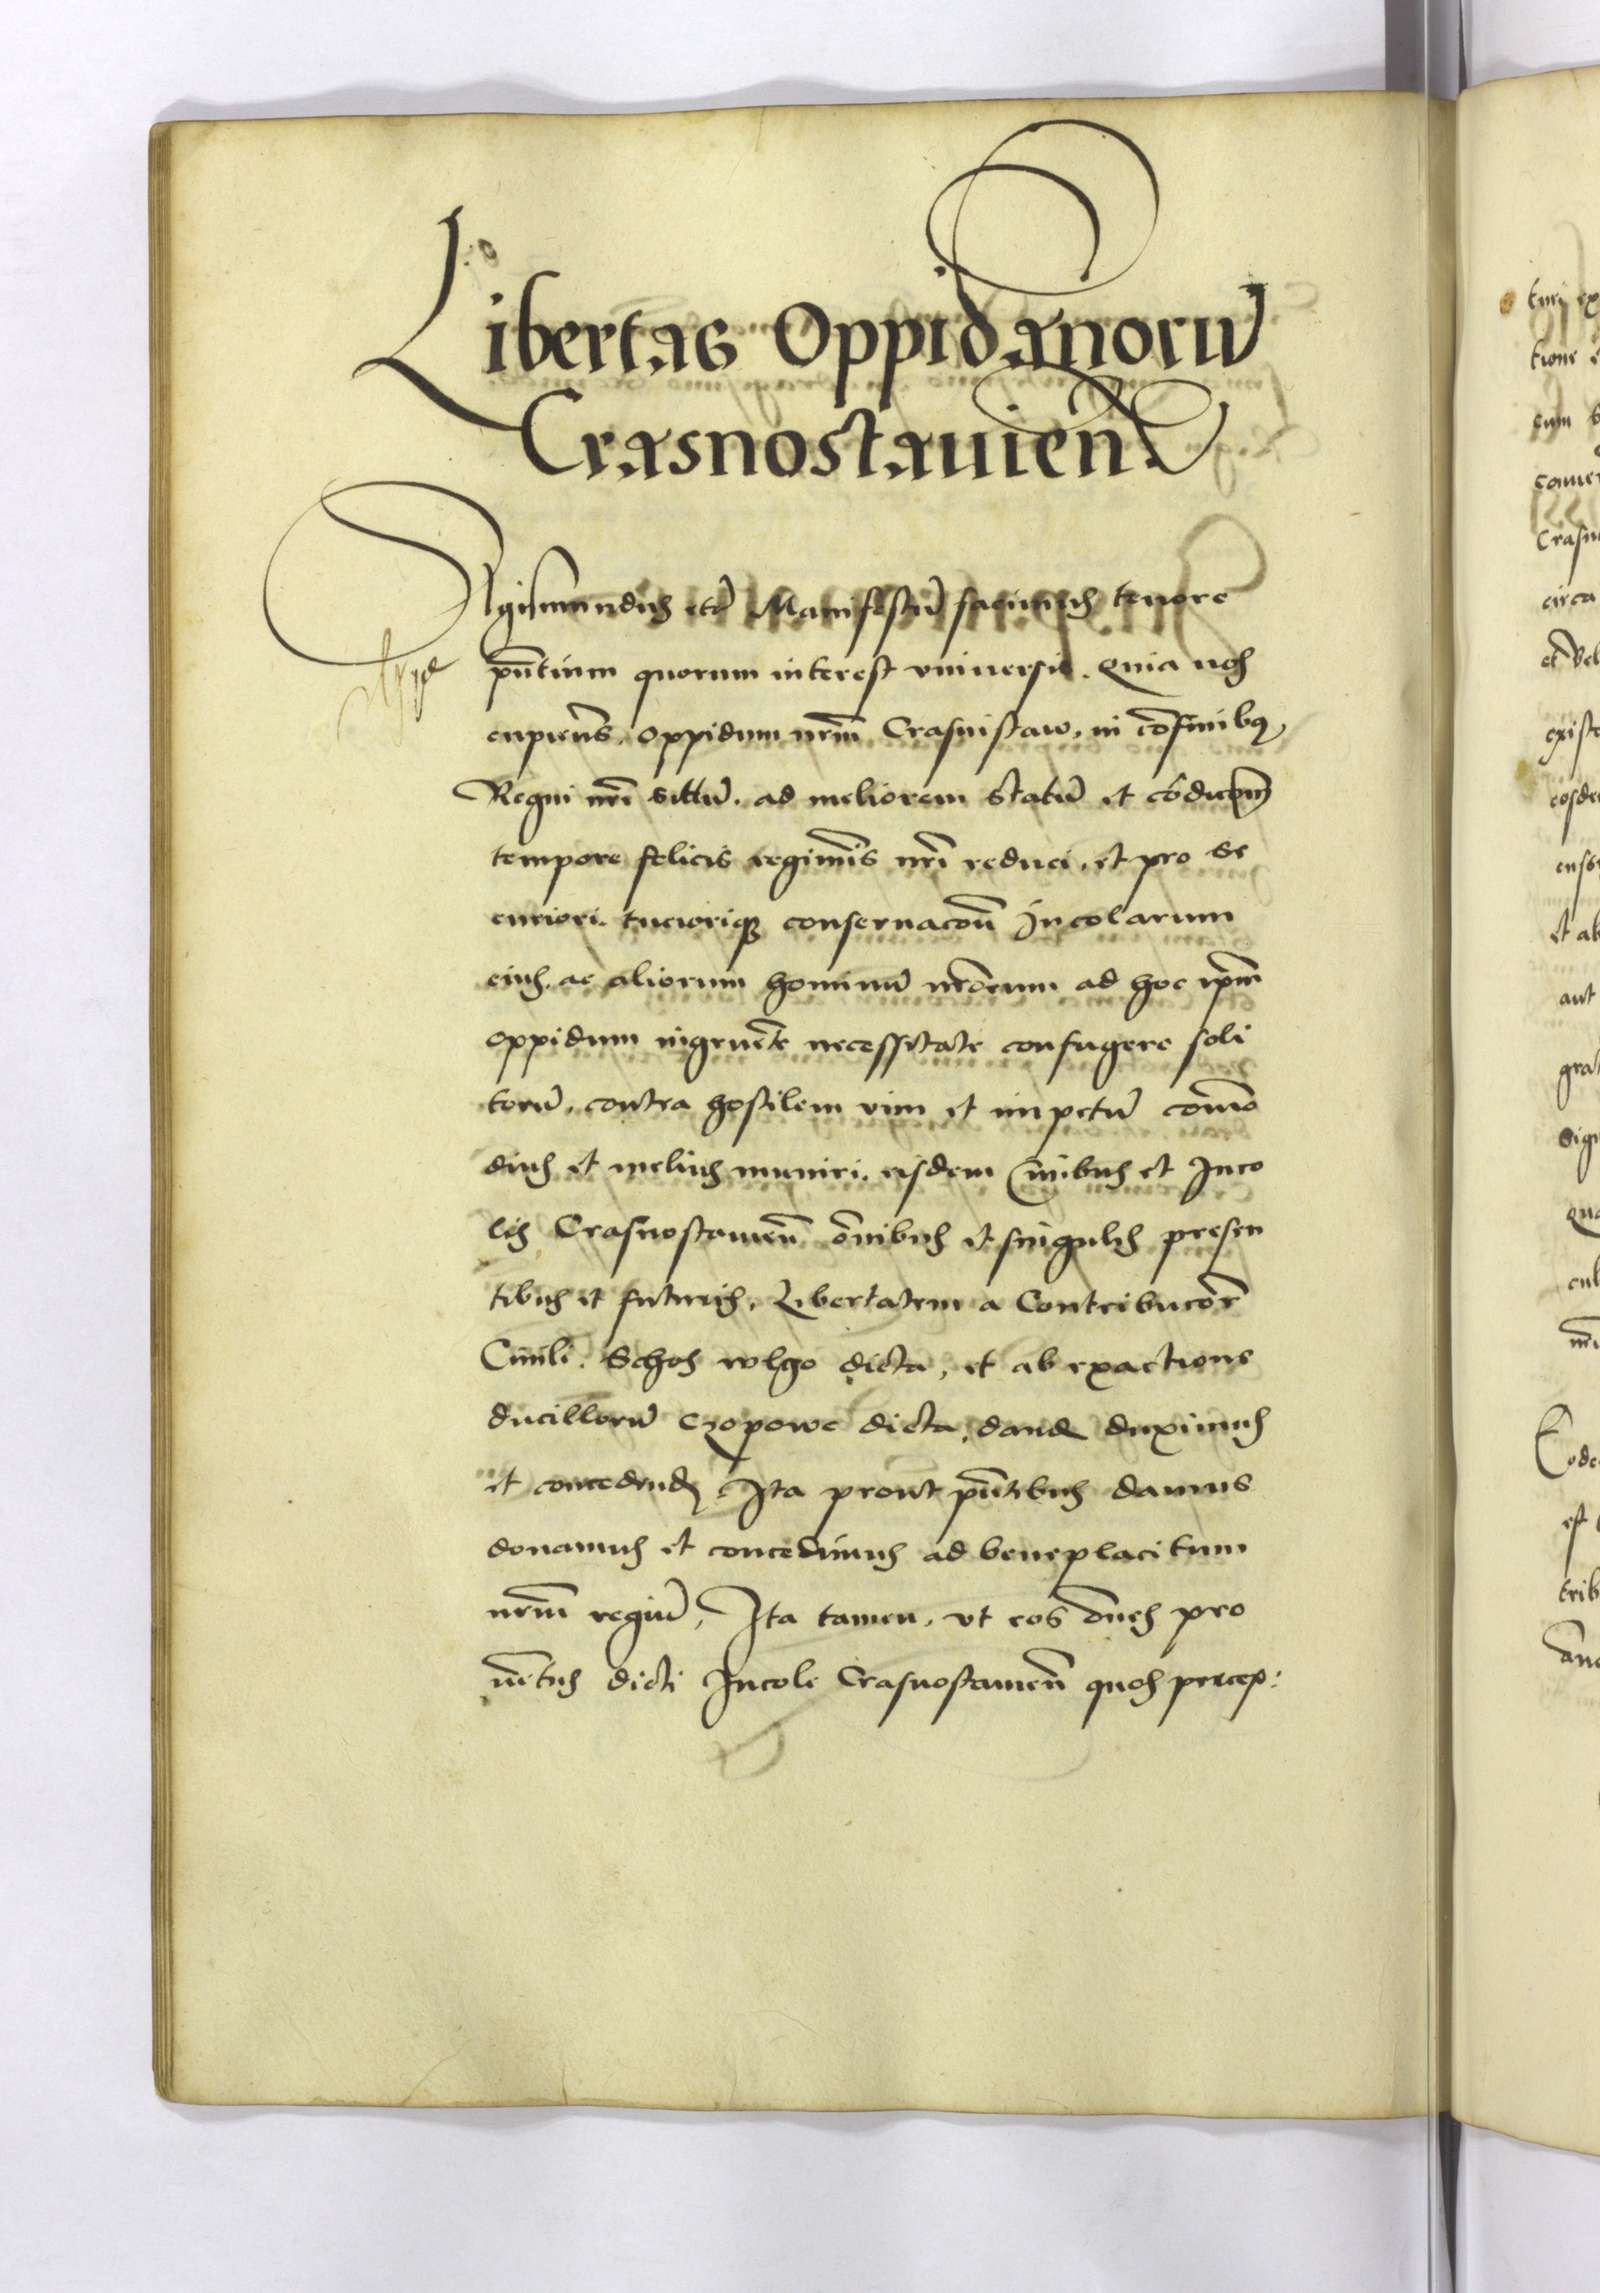 Libertas Oppidanorū
Crasnostauien̄
Sigismundus etc̄ Manifestū facimus tenore
pn̄tium quorum interest vniuersis. Quia nos
cupien̄s, oppidum nrm̄ Crasnistaw, in cōfinibꝰ
Regni nrī sittū, ad meliorem Statū et cōdicōm̄
tempore felicis regimīs nrī reduci, et pro se
curiori tuciorique conseruacōn̄ Incolarum
eius, ac aliorum hominū nrōrum ad hoc ipm̄
oppidum ingruēte necessitate confugere soli
torū, contra hostilem vim et impetū com̄o
dius et melius muniri, eisdem Ciuibus et Inco
lis Crasnostauien̄ om̄ibus et singulis presen
tibus et futuris, Libertatem a Contribucōe
Ciuili, Schos wlgo dicta, et ab exactione
ducillorū Czopowe dicta, dand duximus
et concedend, Ita prout pn̄tibus damus
donamus et concedimus ad beneplacitum
nrm̄ regiū, Ita tamen, vt eos om̄es pro
uētus dicti Incole Crasnostauien̄ quos percep: